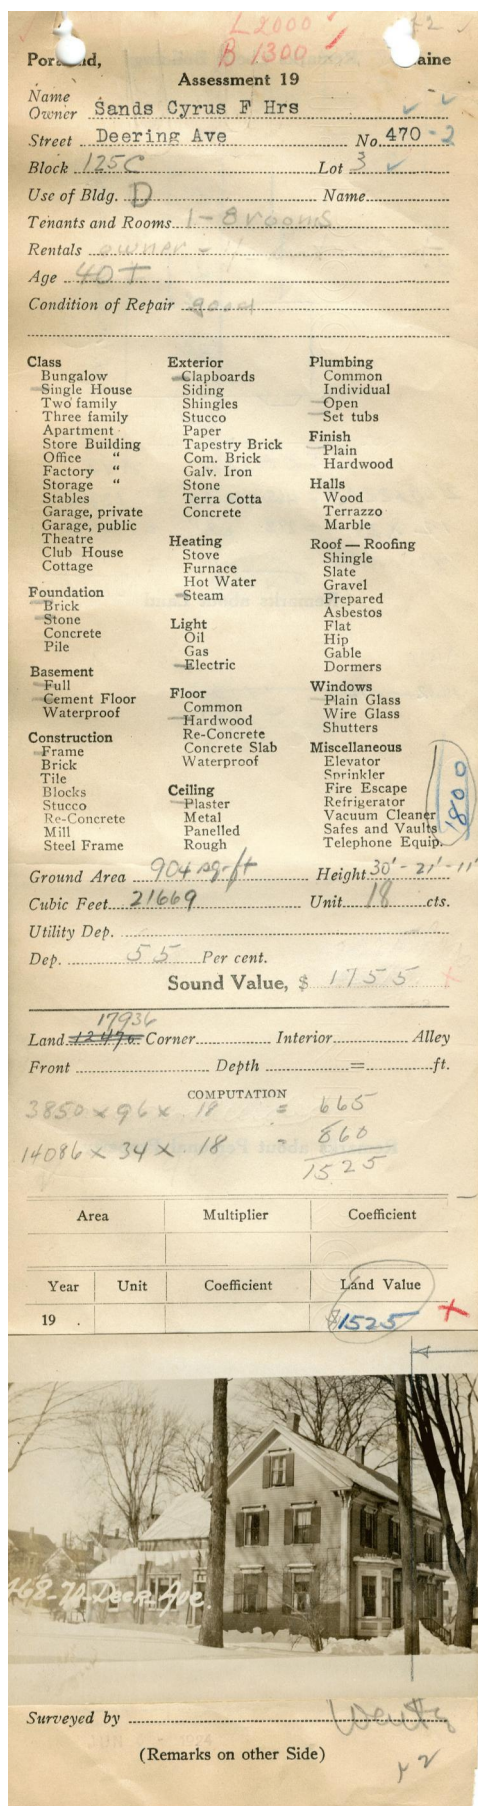 L 2000
B 1300
Portland, Maine
Assessment 19
Name
Owner Sands Cyrus F Hrs
Street Deering Ave No. 470-2
Block 125C Lot 3
Use of Bldg. D Name
Tenants and Rooms 1-8 rooms
Rentals owner -
Age 40+
Condition of Repair good
Class
Bungalow
Single House
Two family
Three family
Apartment
Store Building
Office "
Factory "
Storage "
Stables
Garage, private
Garage, public
Theatre
Club House
Cottage
Foundation
Brick
Stone
Concrete
Pile
Basement
Full
Cement Floor
Waterproof
Construction
Frame
Brick
Tile
Blocks
Stucco
Re-Concrete
Mill
Steel Frame
Exterior
Clapboards
Siding
Shingles
Stucco
Paper
Tapestry Brick
Com. Brick
Galv. Iron
Stone
Terra Cotta
Concrete
Heating
Stove
Furnace
Hot Water
Steam
Light
Oil
Gas
Electric
Floor
Common
Hardwood
Re-Concrete
Concrete Slab
Waterproof
Ceiling
Plaster
Metal
Panelled
Rough
Plumbing
Common
Individual
Open
Set tubs
Finish
Plain
Hardwood
Halls
Wood
Terrazzo
Marble
Roof — Roofing
Shingle
Slate
Gravel
Prepared
Asbestos
Flat
Hip
Gable
Dormers
Windows
Plain Glass
Wire Glass
Shutters
Miscellaneous
Elevator
Sprinkler
Fire Escape
Refrigerator
Vacuum Cleaner
Safes and Vaults
Telephone Equip.
1800
Ground Area 904 sq-ft Height 30'-21'-11'
Cubic Feet 21669 Unit 18 cts.
Utility Dep.
Dep. 55 Per cent.
Sound Value, $ 1755
17936
Land 12470 Corner Interior Alley
Front Depth = ft.
COMPUTATION
3850 x 96 x 18 = 665
14086 x 34 x 18 = 860
1525
Area Multiplier Coefficient
Year Unit Coefficient Land Value
19 . $1525
468-70 Deer. Ave.
Surveyed by
(Remarks on other Side)